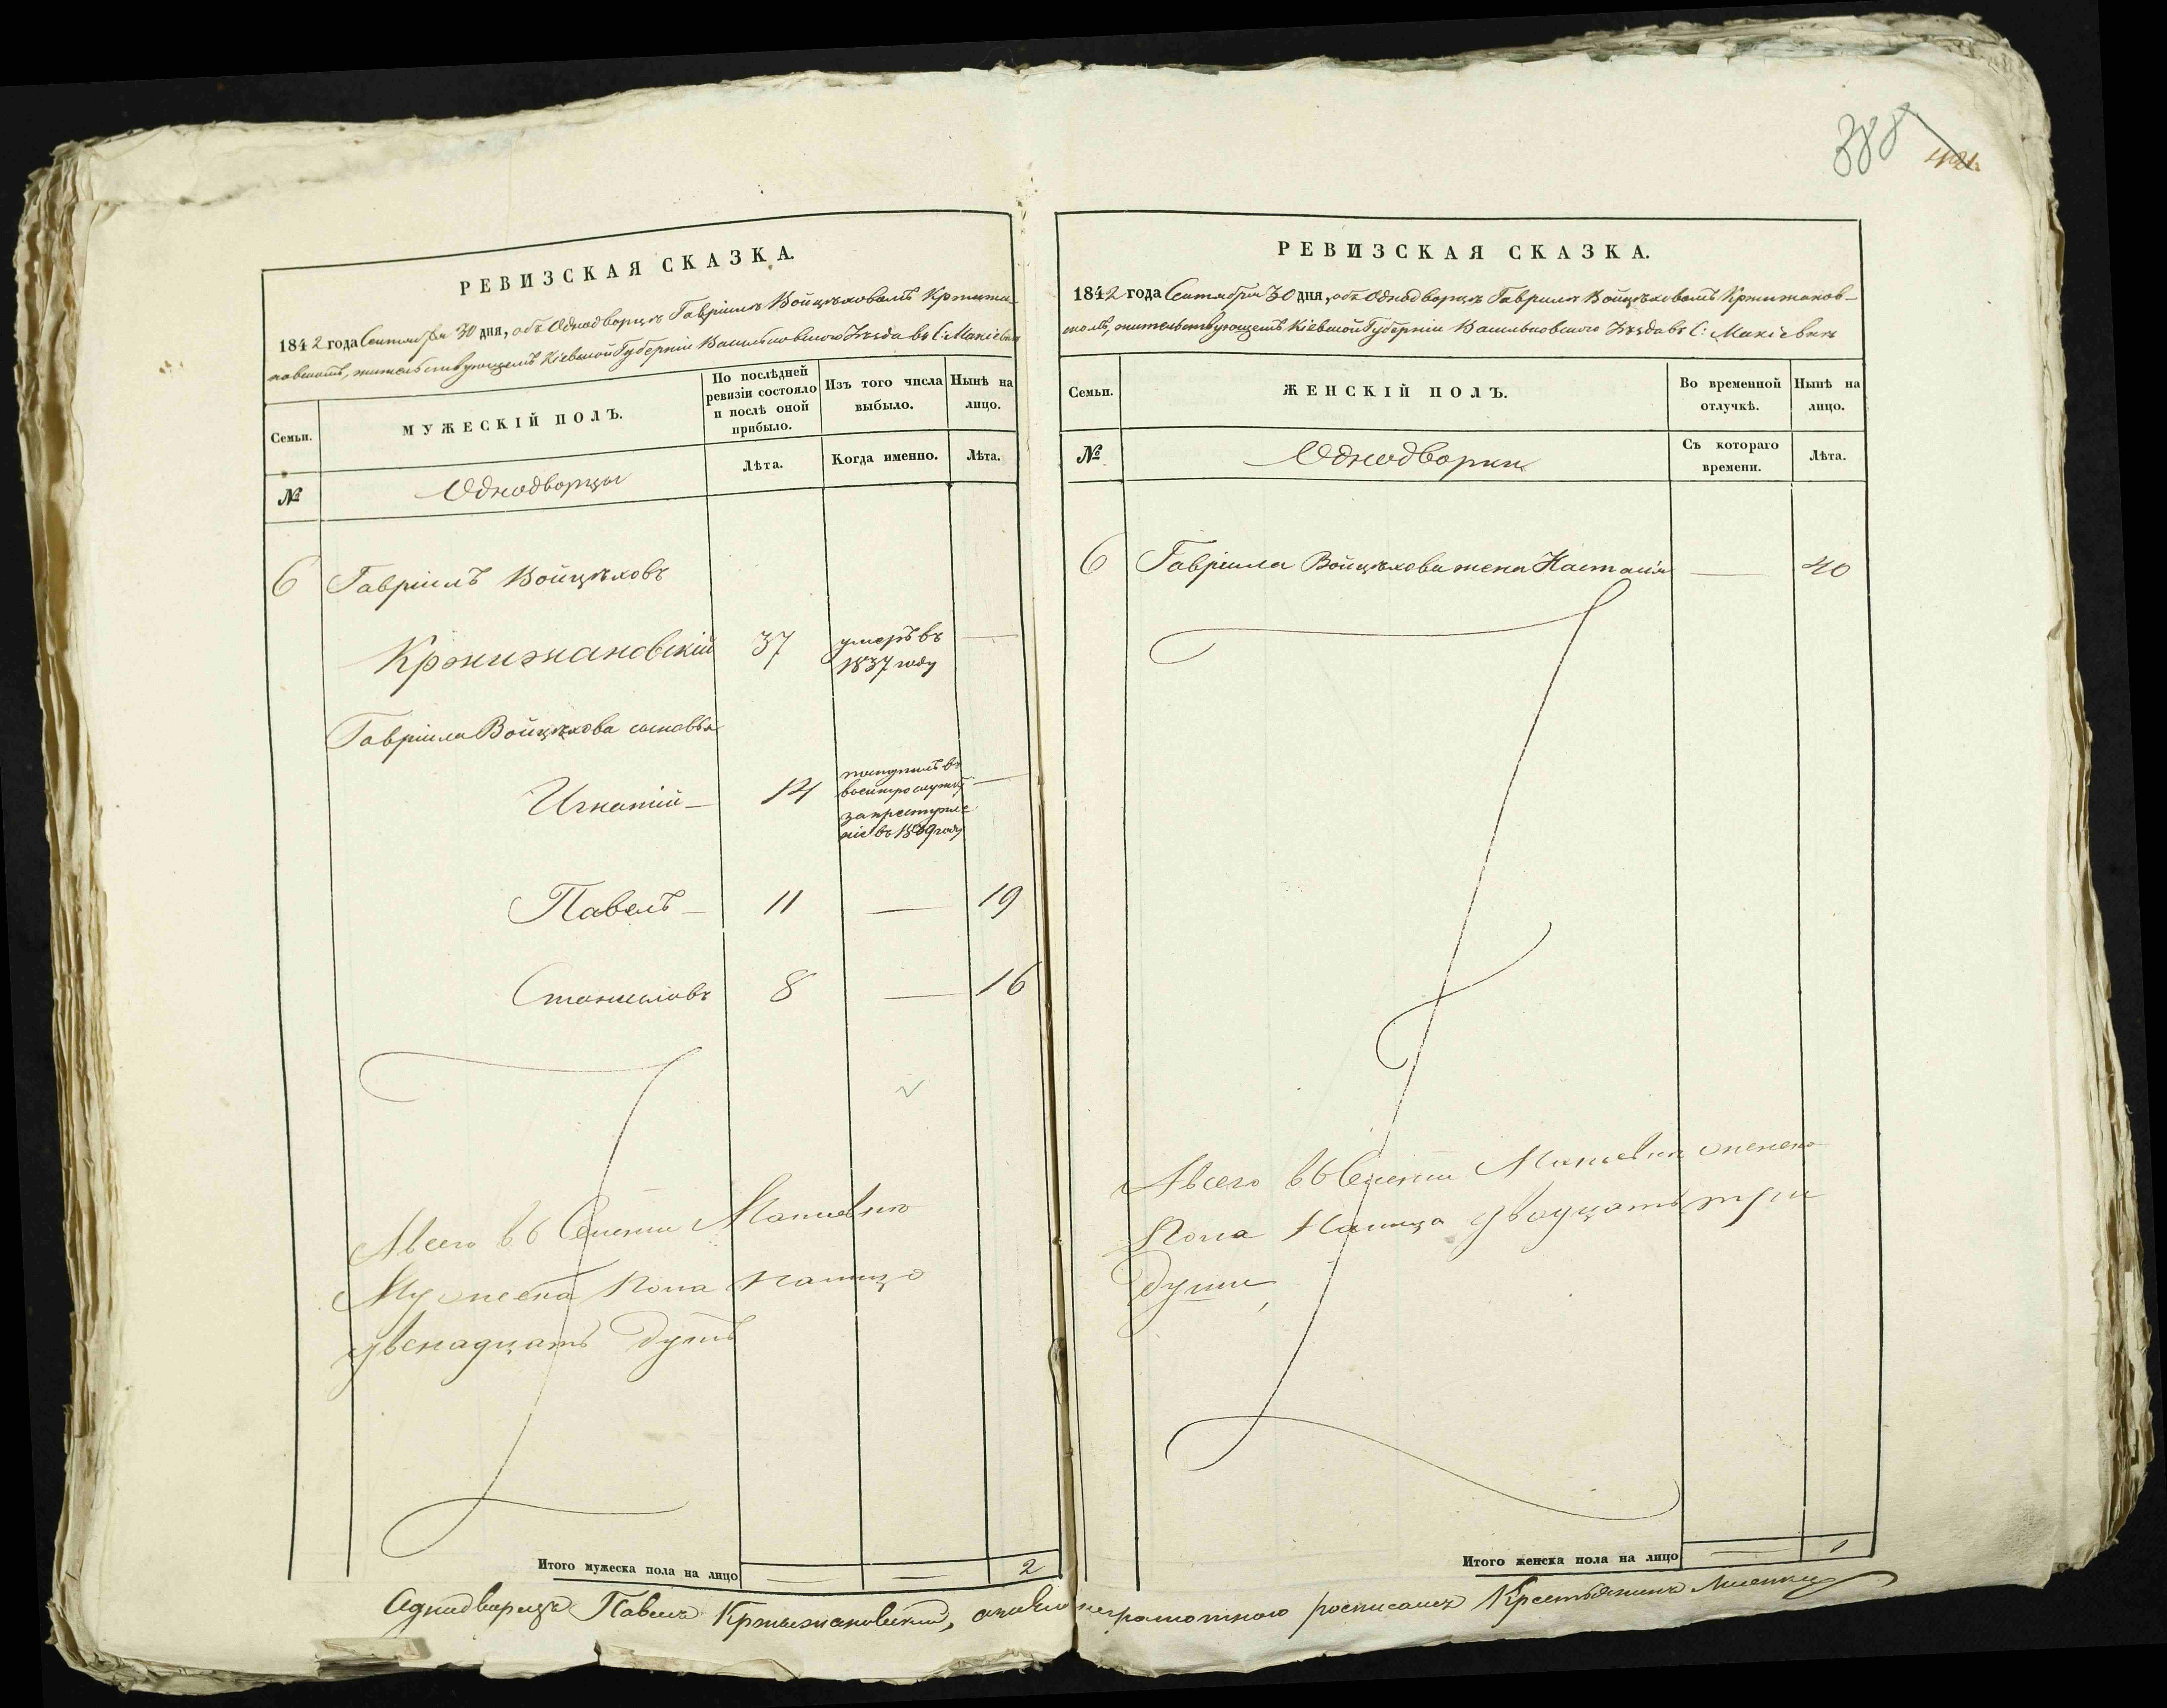 388
РЕВИЗСКАЯ СКАЗКА.
1842 года Сентября 30 дня, объ Однодворцѣ Гавріилѣ Войцѣховомъ Кржижа-
новскомъ, жительствующемъ Кіевской Губерніи Васильковскаго Уѣзда въ С: Макіевкѣ
Семьи.
МУЖЕСКІЙ ПОЛЪ.
По послѣдней ревизіи состояло и послѣ оной прибыло.
Изъ того числа выбыло.
Нынѣ на лицо.
№
Однодворцы
Лѣта.
Когда именно.
Лѣта.
6 Гавріилъ Войцѣховъ
Кржижановскій 37 умеръ въ 1837 году —
Гавріила Войцѣхова сыновья
Игнатій — 14 поступилъ въ военную службу за преступле ніе въ 1839 году —
Павелъ — 11 — 19
Станиславъ 8 — 16
Авсего въ Селеніи Макиевке
Мужеска Пола Налицо
двенадцать Душъ
Итого мужеска пола на лицо — — 2
РЕВИЗСКАЯ СКАЗКА.
1842 года Сентября 30 дня, объ Однодворцѣ Гавриилѣ Войцѣховомъ Кржижанов-
скомъ, жительствующемъ Кіевской Губерніи Васильковского Уѣзда въ С: Макіевкѣ
Семьи.
ЖЕНСКІЙ ПОЛЪ.
Во временной отлучкѣ.
Нынѣ на лицо.
№
Однодворки
Съ котораго времени.
Лѣта.
6 Гавріила Войцѣхова жена Настасія — 40
Авсего въ Селении Макиевки женска
Пола Налицо двадцать три
души
Итого женска пола на лицо — 1
Аднадворецъ Павелъ Кржыжановский, анеграмотного росписался Крестьянинъ